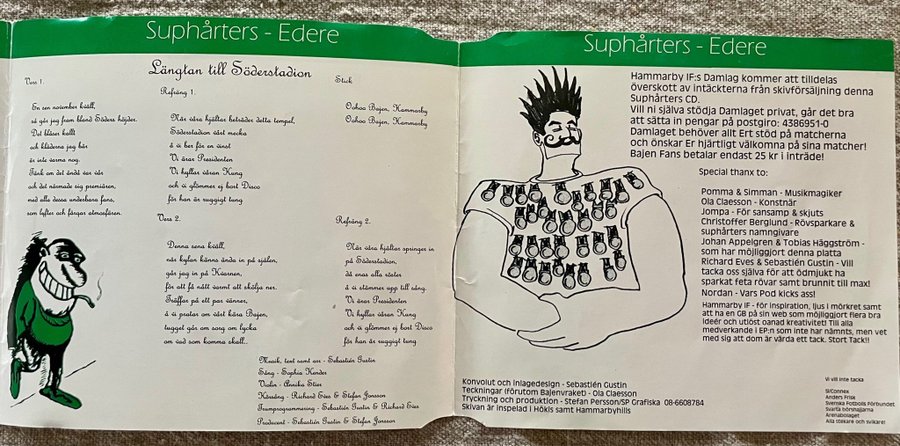 Suphårters - Edere
Längtan till Söderstadion
Vers 1.
En sen november kväll,
så går jag fram bland Söders höjder.
Det blåser kallt
och kläderna jag bär
är inte varma nog.
Tänk om det ändå var vår
och det närmade sig premiären,
med alla dessa underbara fans,
som lyfter och färgar atmosfären.
Refräng 1.
När våra hjältar beträder detta tempel,
Söderstadion vårt mecka
då vi ber för en vinst
Vi ärar Presidenten
Vi hyllar våran Kung
och vi glömmer ej bort Disco
för han är ruggigt tung
Stick
Oohoo Bajen, Hammarby
Oohoo Bajen, Hammarby
Vers 2.
Denna sena kväll,
när kylan känns ända in på själen,
går jag in på Kvarnen,
för att få nått varmt att skölja ner.
Träffar på ett par vänner,
då vi pratar om vårt kära Bajen,
tugget går om sorg om lycka
om vad som komma skall..
Refräng 2.
När våra hjältar springer in
på Söderstadion,
då enas alla röster
då vi stämmer upp till sång.
Vi ärar Presidenten
Vi hyllar våran Kung
och vi glömmer ej bort Disco
för han är ruggigt tung
Musik, text samt arr - Sebastién Gustin
Sång - Sophia Kender
Violin - Annika Stier
Körsång - Richard Eves & Stefan Jonsson
Trumprogrammering - Sebastién Gustin & Richard Eves
Producent - Sebastién Gustin & Stefan Jonsson
Suphårters - Edere
Hammarby IF:s Damlag kommer att tilldelas
överskott av intäckterna från skivförsäljning denna
Suphårters CD.
Vill ni själva stödja Damlaget privat, går det bra
att sätta in pengar på postgiro: 4386951-0
Damlaget behöver allt Ert stöd på matcherna
och önskar Er hjärtligt välkomna på sina matcher!
Bajen Fans betalar endast 25 kr i inträde!
Special thanx to:
Pomma & Simman - Musikmagiker
Ola Claesson - Konstnär
Jompa - För sansamp & skjuts
Christoffer Berglund - Rövsparkare &
suphårters namngivare
Johan Appelgren & Tobias Häggström -
som har möjliggjort denna platta
Richard Eves & Sebastién Gustin - Vill
tacka oss själva för att ödmjukt ha
sparkat feta rövar samt brunnit till max!
Nordan - Vars Pod kicks ass!
Hammarby IF - för inspiration, ljus i mörkret samt
att ha en GB på sin web som möjliggjort flera bra
ideér och utlöst oanad kreativitet! Till alla
medverkande i EP:n som inte har nämnts, men vet
med sig att dom är värda ett tack. Stort Tack!!
Konvolut och inlagedesign - Sebastién Gustin
Teckningar (förutom Bajenvraket) - Ola Claesson
Tryckning och produktion - Stefan Persson/SP Grafiska 08-6608784
Skivan är inspelad i Hökis samt Hammarbyhills
Vi vill inte tacka
SI/Connex
Anders Frisk
Svenska Fotbolls Förbundet
Svarta börshajjarna
Arenabolaget
Alla tjackare och svikare!